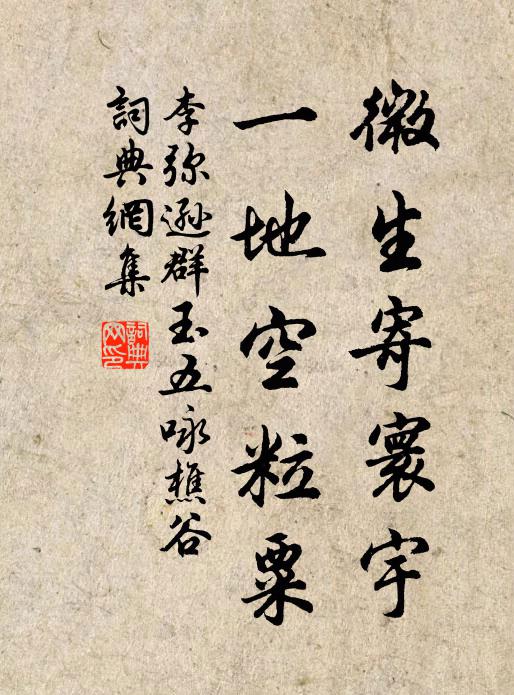 微生寄寰宇
一地空粒粟
李弥遜群玉五咏樵谷
詞典網集
詞典网印